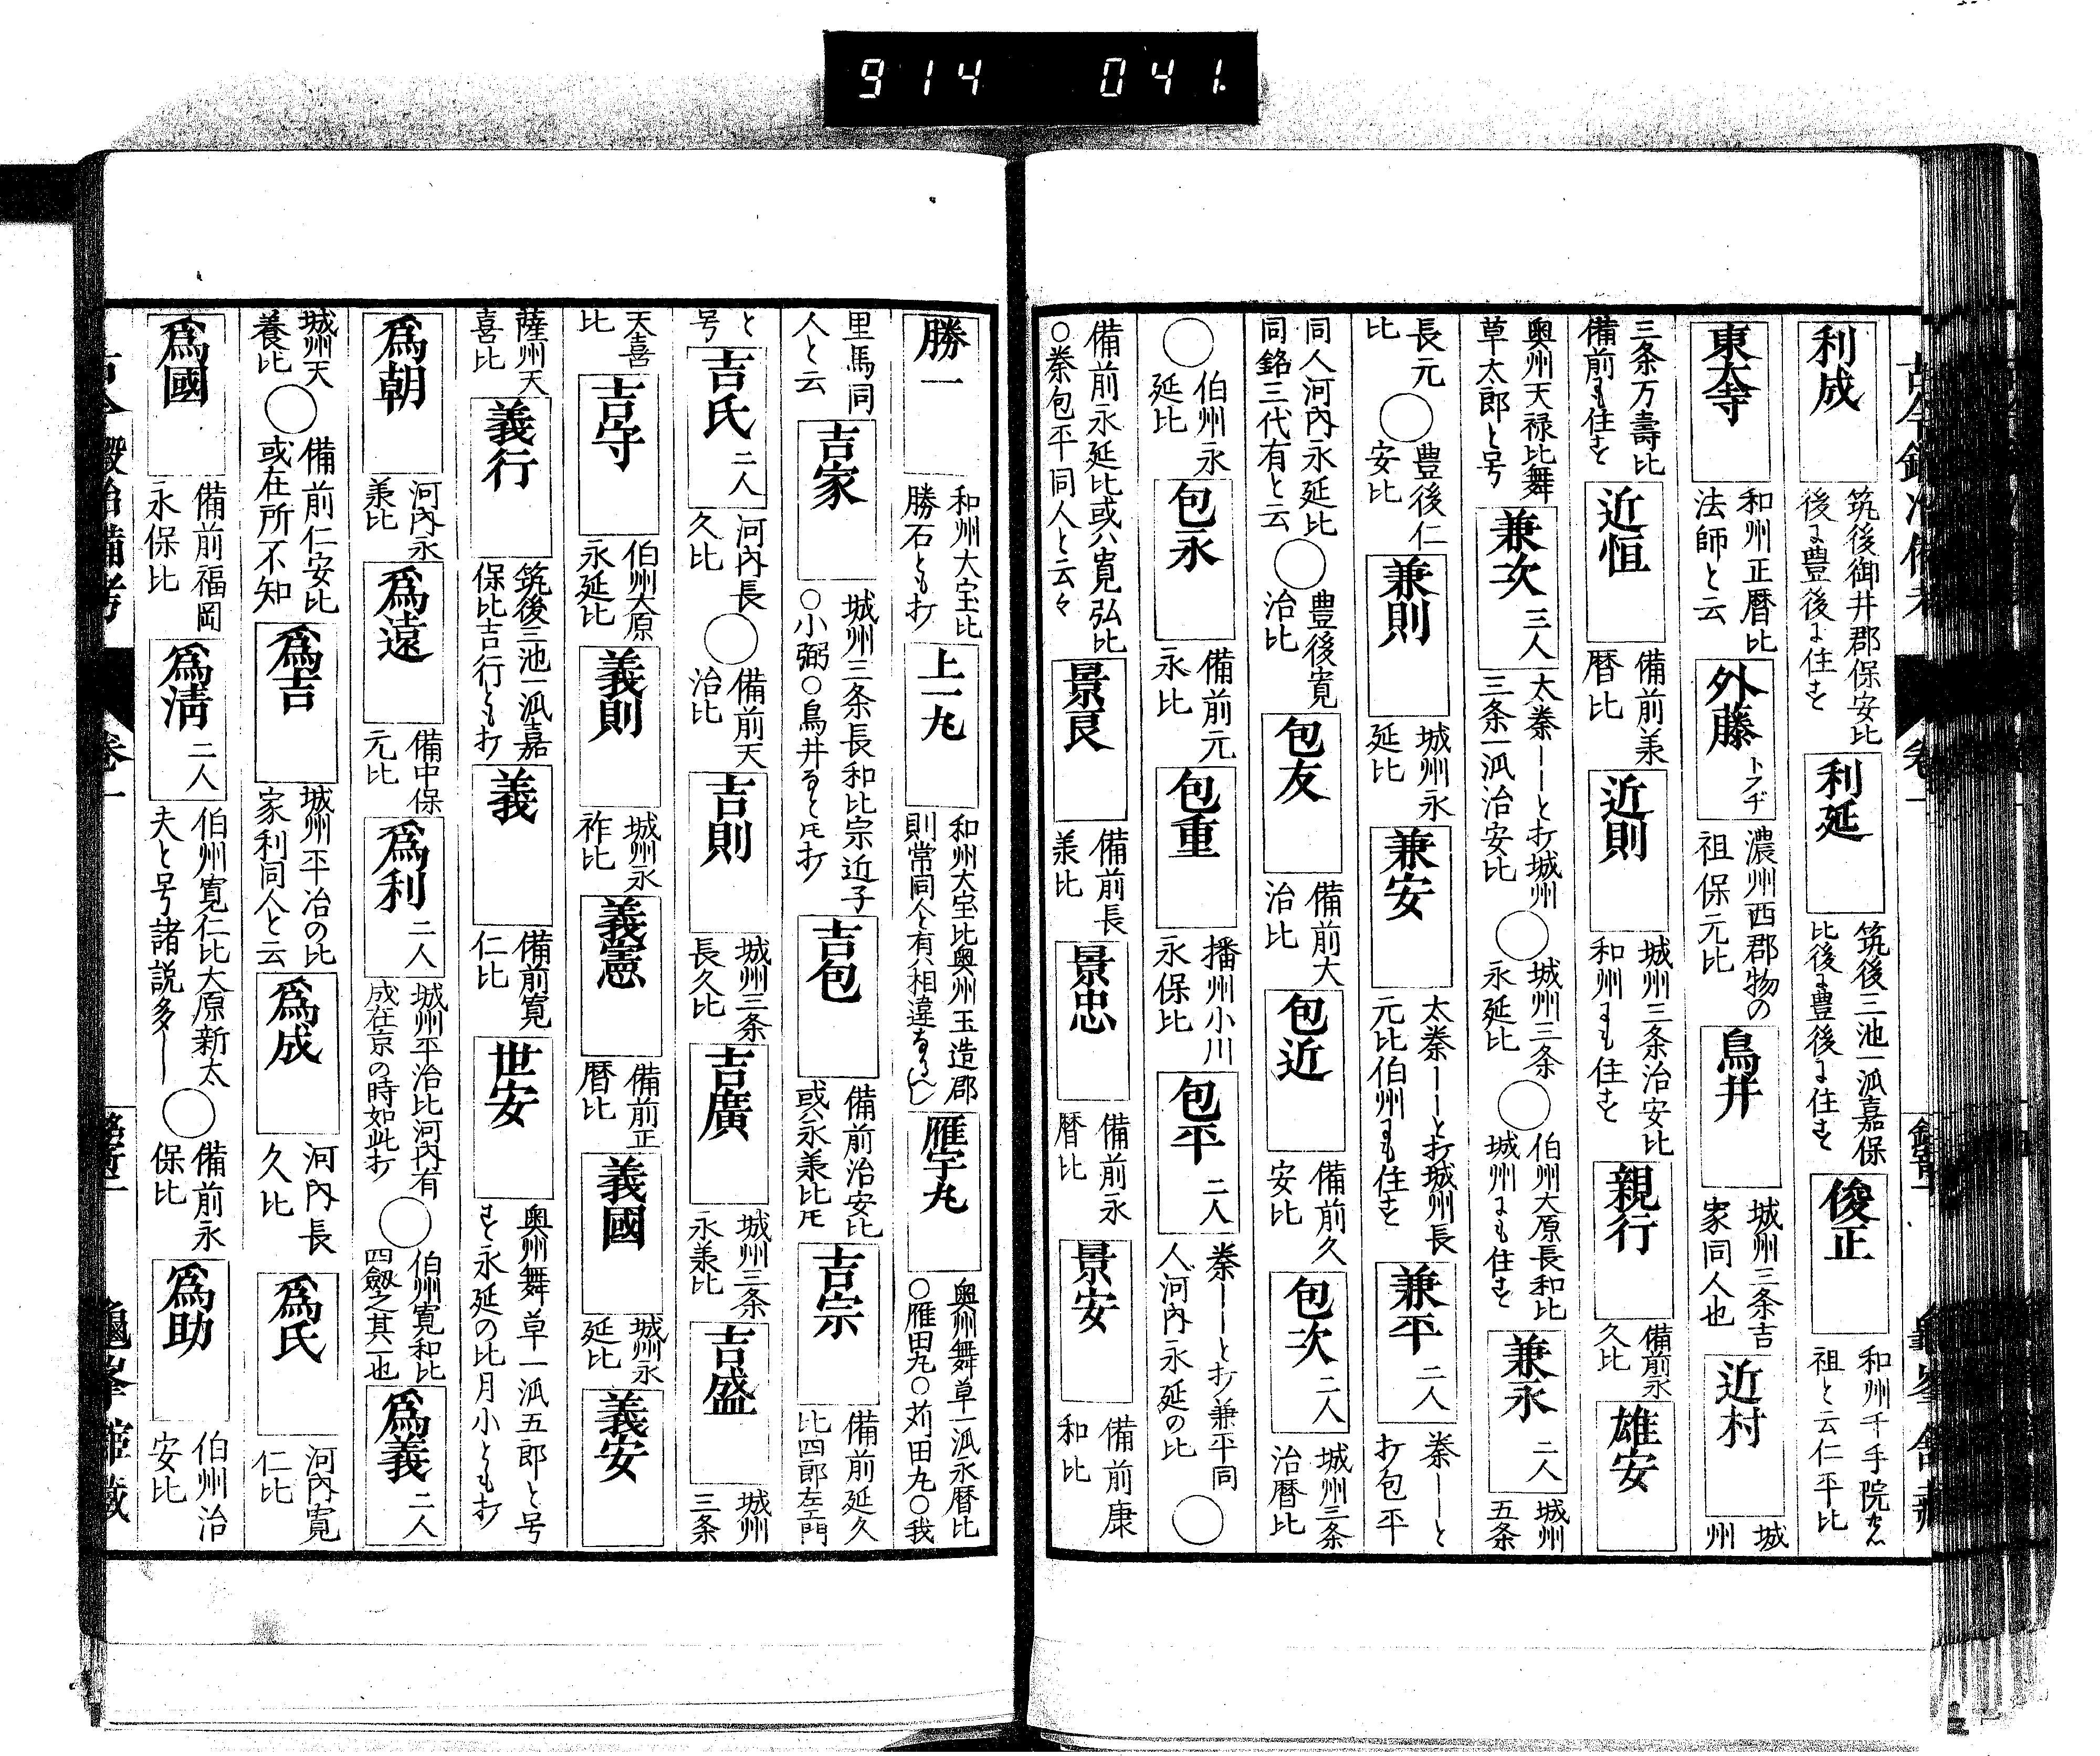 914 041.
利成 筑後御井郡保安比後ニ豊後ニ住す 利延 筑後三池一派嘉保比後ニ豊後ニ住す 俊正 和州千手院 祖と云仁平比
東大寺 和州正暦比法師と云 外藤 トフヂ 濃州西郡物の祖保元比 鳥井 城州三条吉家同人也 近村 城州
三条万壽比備前ニも住す 近恒 備前義暦比 近則 城州三条治安比和州ニも住す 親行 備前永久比 雄安
奥州天禄比舞草太郎と号 兼次 三人 太秦一一と打城州三条一派治安比 ○ 城州三条永延比 ○ 伯州大原長和比城州ニも住す 兼永 二人 城州五条
長元比 ○ 豊後仁安比 兼則 城州永延比 兼安 太秦一一と打城州長元比伯州ニも住す 兼平 二人 秦一一と打包平
同人河内永延比同銘三代有と云 ○ 豊後寛治比 包友 備前大治比 包近 備前久安比 包次 二人 城州三条治暦比
○ 伯州永延比 包永 備前元永比 包重 播州小川永保比 包平 二人 秦一一と打兼平同人河内永延の比 ○
備前永延比或ハ寛弘比○秦包平同人と云々 景良 備前長義比 景忠 備前永暦比 景安 備前康和比
勝一 和州大宝比勝石とも打 上一丸 和州大宝比奥州玉造郡則常同人と有ハ相違なるへし 雁宇丸 奥州舞草一派永暦比○雁田丸○苅田丸○我
里馬同人と云 吉家 城州三条長和比宗近子○小弼○鳥井なと㽵打 吉包 備前治安比或ハ永義比㽵 吉宗 備前延久比四郎左エ門
と号 吉氏 二人 河内長久比 ○ 備前天治比 吉則 城州三条長久比 吉廣 城州三条永義比 吉盛 城州三条
天喜比 吉守 伯州大原永延比 義則 城州永祚比 義憲 備前正暦比 義國 城州永延比 義安
薩州天喜比 義行 筑後三池一派嘉保比吉行とも打 義 備前寛仁比 世安 奥州舞草一派五郎と号す永延の比月小とも打
為朝 河内永義比 為遠 備中保元比 為利 二人 城州平治比河内有成在京の時如此打 ○ 伯州寛和比四劔之其一也 為義 二人
城州天養比 ○ 備前仁安比或在所不知 為吉 城州平治の比家利同人と云 為成 河内長久比 為氏 河内寛仁比
為國 備前福岡永保比 為清 二人 伯州寛仁比大原新太夫と号諸説多し ○ 備前永保比 為助 伯州治安比